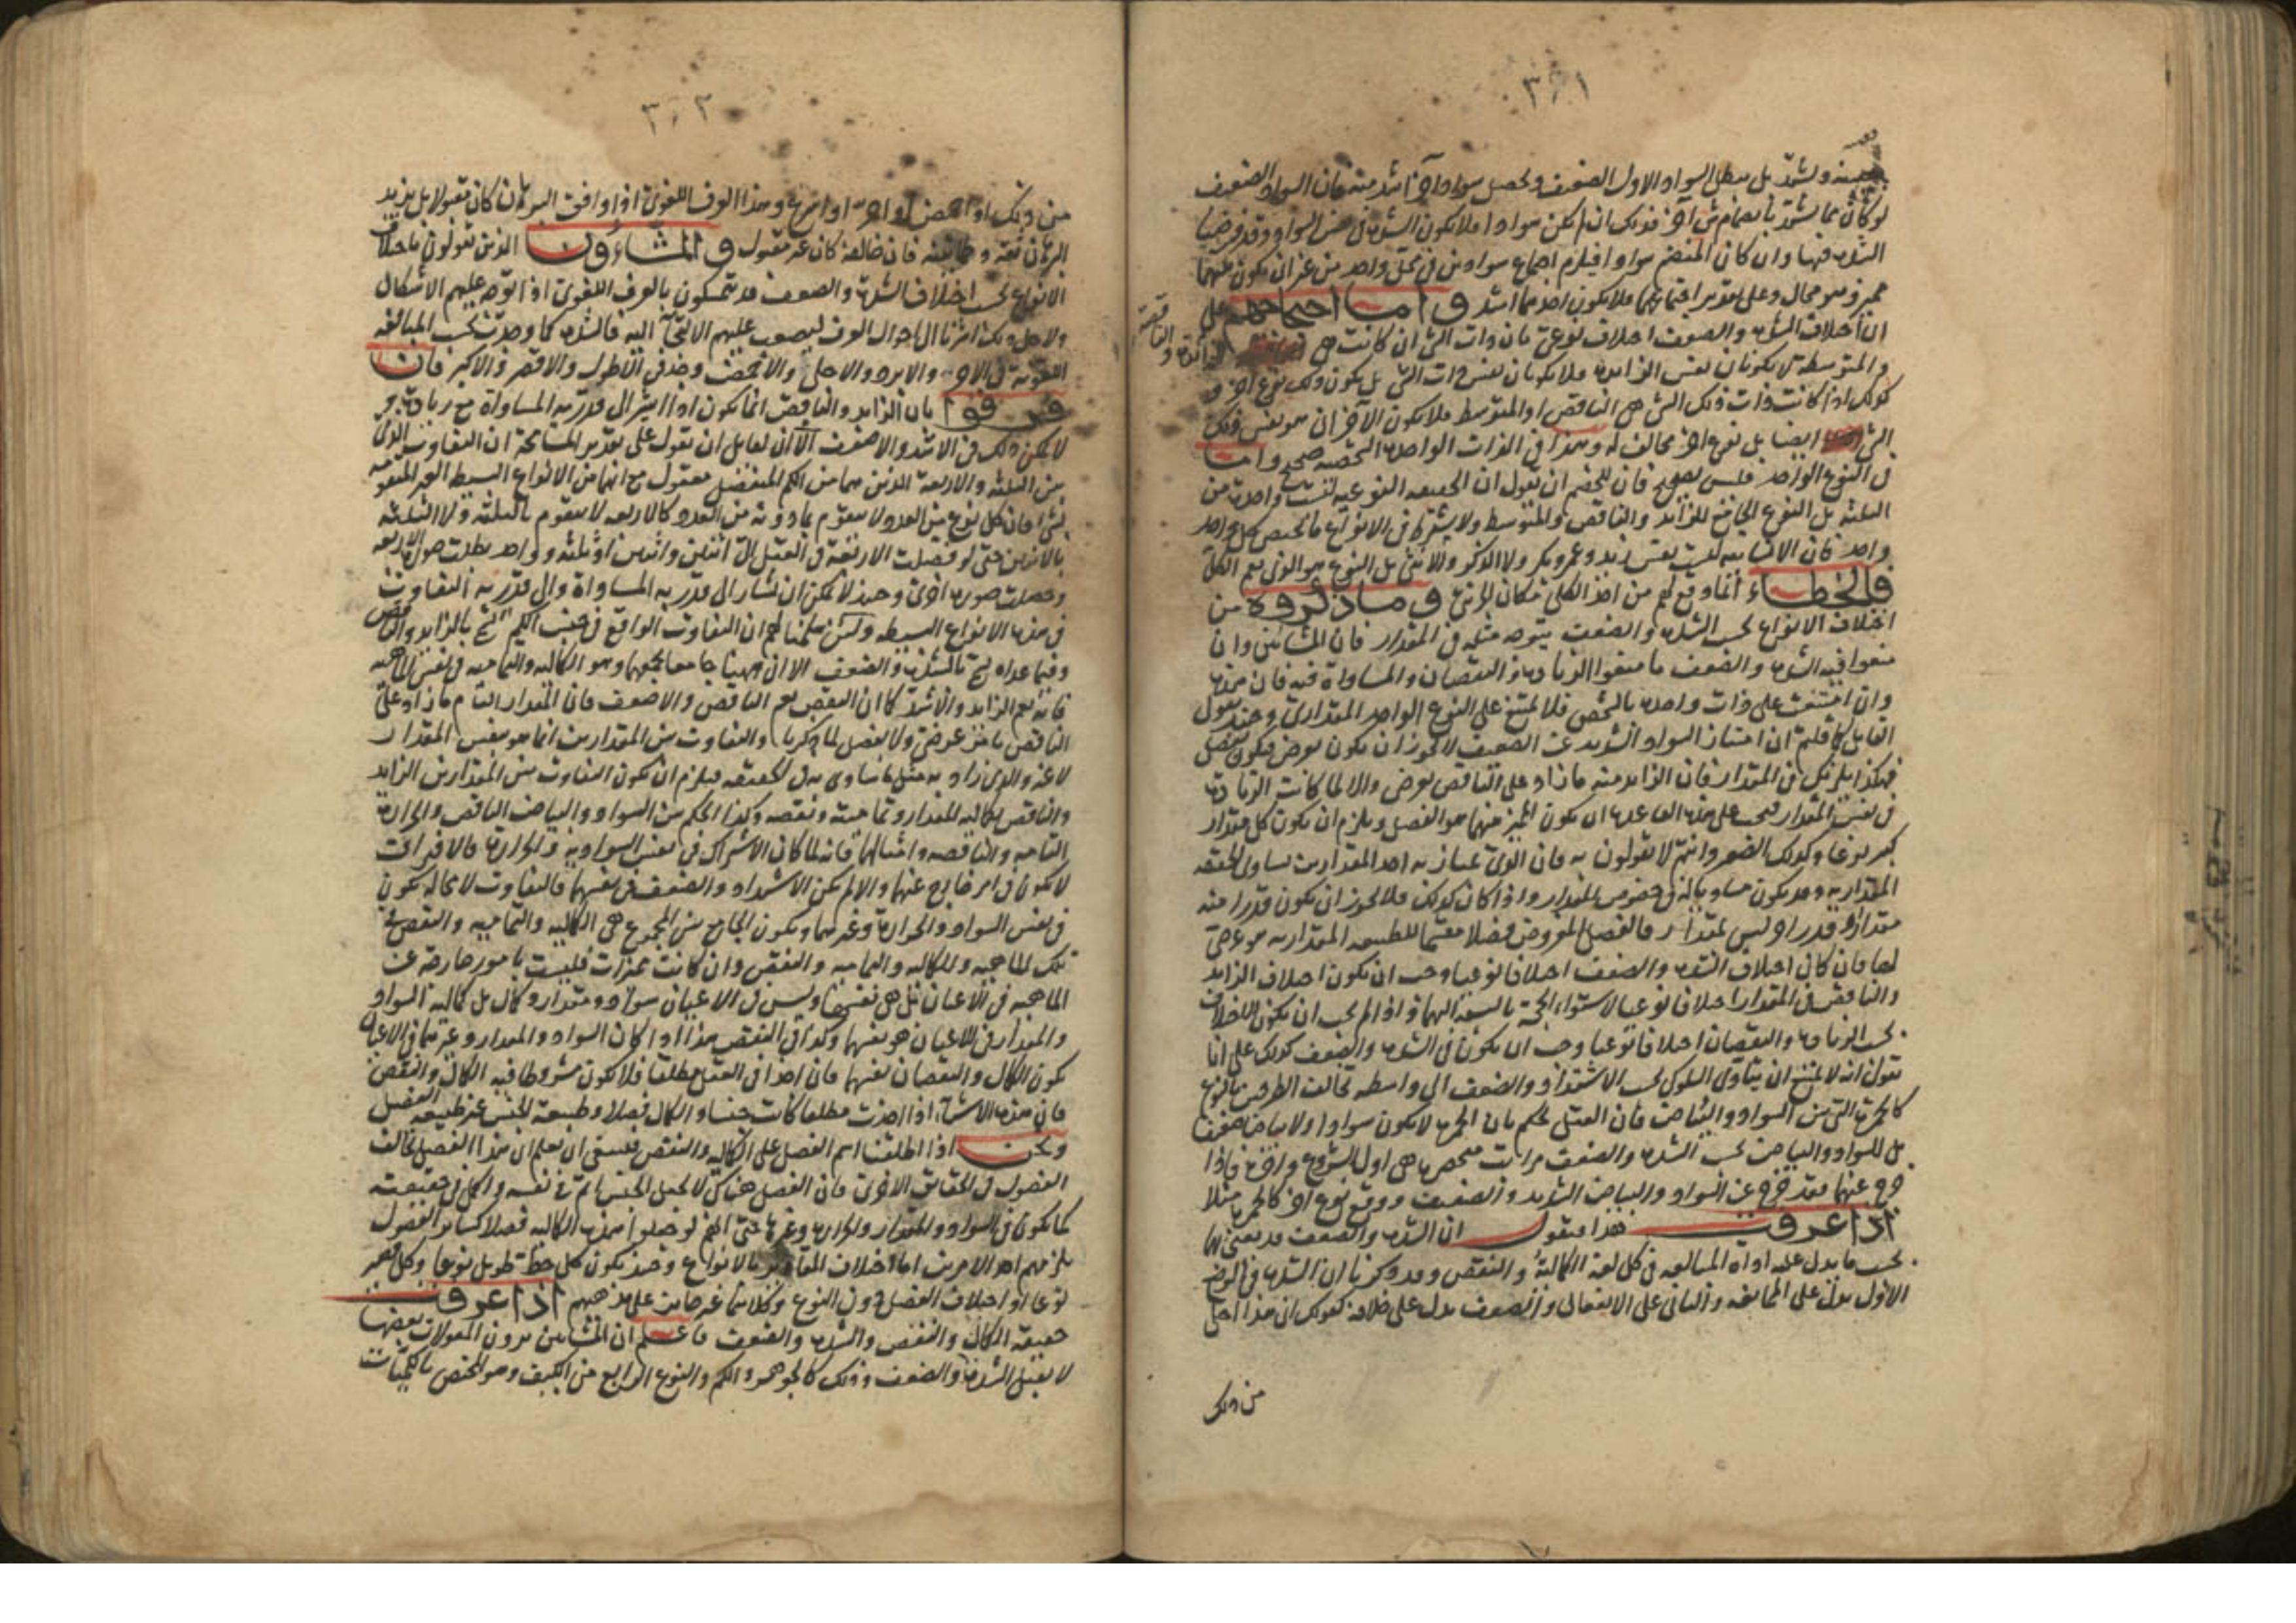 ٣٠١
بعينه ويشتد بل يبطل السواد الاول الضعيف ويحصل سواد آخر اشد منه فان السواد الضعيف
لو كان مما يشتد بانضمام شئ آخر فذلك ان لم يكن سوادا فلا يكون الشدة في السواد وقد فرضنا
الشدة فيها وان كان المنضم سوادا فيلزم اجتماع سوادين في محل واحد من غير ان يكون بينهما
مميز وهو محال وعلى تقدير اجتماعهما فلا يكون احدهما اشد واما احتجاجهم على
ان اختلاف الشدة والضعف اختلاف نوعي بان ذات الشئ ان كانت هي الزائدة والناقصة
والمتوسطة لا يكونان نفس الزائدة فلا يكونان نفس ذات الشئ بل يكون ذلك نوع آخر و
كذلك اذا كانت ذات ذلك الشئ هي الناقص او المتوسط فلا يكون الآخران هو نفس ذلك
الشئ ايضا بل نوع آخر مخالف له وهذا في الذات الواحدة الشخصية صحيح واما
في النوع الواحد فليس بصحيح فان للخصم ان يقول ان الحقيقة النوعية ليست واحدة من
الثلثة بل النوع الجامع للزائد والناقص والمتوسط ولا يشترط في الانواع ما يختص بكل واحد
واحد فان الانسانية ليست نفس زيد وعمرو وبكر ولا الذكر والانثى بل النوع هو الذي يعم الكل
فالخطاء انما وقع لهم من اخذ الكلي مكان الجزئي وما ذكروه من
اختلاف الانواع بحسب الشدة والضعف يتوجه مثله في المقدار فان المشائين وان
منعوا فيه الشدة والضعف ما منعوا الزيادة والنقصان والمساواة فيه فان هذه
وان امتنعت على ذات واحدة بالشخص فلا يمتنع على النوع الواحد المقداري وحينئذ يقول
القائل كما قلتم ان امتياز السواد الشديد عن الضعيف لا يجوز ان يكون بعرض فيكون بفصل
فهكذا يلزمكم في المقدار فان الزائد منه ما زاد على الناقص بعرض والا لما كانت الزيادة
في نفس المقدار فيجب على هذه القاعدة ان يكون المميز بينهما هو الفصل ويلزم ان يكون كل مقدار
كبير نوعا وكذلك الصغير وانتم لا تقولون به فان الذي يمتاز به احد المقدارين يساوي الحقيقة
المقدارية وقد يكون مساويا له في خصوص المقدار واذا كان كذلك فلا يجوز ان يكون قدرا منه
مقدارا وقدرا آخر ليس بمقدار فالفصل المفروض فصلا مقسما للطبيعة المقدارية هو عرضي
لها فان كان اختلاف الشدة والضعف اختلافا نوعيا وجب ان يكون اختلاف الزايد
والناقص في المقدار اختلافا نوعيا لاستواء الحجة بالنسبة اليهما واذا لم يجب ان يكون الاختلاف
بحسب الزيادة والنقصان اختلافا نوعيا وجب ان يكون في الشدة والضعف كذلك على انا
نقول انه لا يمتنع ان يتأدى السلوك بحسب الاشتداد والضعف الى واسطة تخالف الطرفين بالنوع
كالحمرة التي بين السواد والبياض فان العقل يحكم بان الحمرة لا يكون سوادا ولا بياضا ضعيفا
بل للسواد والبياض بحسب الشدة والضعف مراتب منحصرة هي اول الشروع وآخره فاذا
خرج عنهما فقد خرج عن السواد والبياض الشديد والضعيف ووقع نوع آخر كالحمرة مثلا
اذا عرفت هذا فنقول ان الشدة والضعف قد يعنى بها
بحسب ما يدل عليه اداة المبالغة في كل لغة الكمالية والنقص وقد ذكرنا ان الشدة في الوضع
الاول يدل على الممانعة والثاني على الانفعال والضعف يدل على خلافه كقولك ان هذا احلى
من ذلك
٣٠٢
من ذلك او احمض او احر او اسرع وهذا العرف اللغوي اذا وافق البرهان كان مقبولا بل يزيد
البرهان ثقة وطمأنينة فان خالفه كان غير مقبول والمشاؤون الذين يقولون باختلاف
الانواع بحسب اختلاف الشدة والضعف قد يتمسكون بالعرف اللغوي اذا توجه عليهم الاشكال
ولاجل ذلك اشرنا الى احوال العرف ليصعب عليهم الالتجآ اليه فالشدة كما وجدت بحسب المبالغة
اللغوية في الاحر والابرد والاحلى والاحمض وجد في الاطول والاقصر والاكبر فان
فرقوا بان الزايد والناقص انما يكون اذا اشير الى قدر به المساواة مع زيادة و
لا يمكن ذلك في الاشد والاضعف الآ ان لقايل ان يقول على تقدير المسامحة ان التفاوت الذي
بين الثلثة والاربعة الذين هما من الكم المنفصل معقول مع انهما من الانواع البسيطة الغير المتقومة
بشئ فان كل نوع من العدد لا يتقوم بما دونه من العدد كالاربعة لا يتقوم بالثلثة ولا الثلثة
بالاثنين حتى لو فصلت الاربعة في العقل الى اثنين واثنين او ثلثة وواحد بطلت صورة الاربعة
وحصلت صورة اخرى وحينئذ لا يمكن ان يشار الى قدر به المساواة والى قدر به التفاوت
في هذه الانواع البسيطة ولئن سلمنا لهم ان التفاوت الواقع في جنس الكم يسمى بالزايد والناقص
وفيما عداه يسمى بالشدة والضعف الا ان ههنا جامعا يجمعها وهو الكمالية والتمامية في نفس الماهية
فانه يعم الزايد والاشد كما ان النقص يعم الناقص والاضعف فان المقدار التام ما زاد على
الناقص بامر عرضي ولا بفصل لما ذكرنا والتفاوت بين المقدارين انما هو بنفس المقدار
لا غير والذي زاد به مثل ما ساوى به في الحقيقة فيلزم ان يكون التفاوت بين المقدارين الزايد
والناقص بكمالية المقدار وتماميته ونقصه وكذا الحكم بين السواد والبياض الناقص والحرارة
التامة والناقصة وامثالها فانه لما كان الاشتراك في نفس السوادية والحرارة فالافتراق
لا يكون في امر خارج عنهما والا لم يكن الاشتداد والضعف في نفسهما فالتفاوت لا محالة يكون
في نفس السواد والحرارة وغيرهما ويكون الجامع بين المجموع هي الكمالية والتمامية والنقص في
تلك الماهية وللكمالية والتمامية والنقص وان كانت مميزات فليست بامور خارجة عن
الماهية في الاعيان بل هي نفسها وليس في الاعيان سواد ومقدار وكمال بل كمالية السواد
والمقدار في الاعيان هو نفسها وكذا في النقص هذا اذا كان السواد والمقدار وغيرهما في الاعيان
يكون الكمال والنقصان نفسها فان اخذ في العقل مطلقا فلا يكون مشروطا فيه الكمال والنقص
فان هذه الاشياء اذا اخذت مطلقا كانت جنسا والكمال فصلا وطبيعة الجنس غير طبيعة الفصل
ونحن اذا اطلقنا اسم الفصل على الكمالية والنقص فينبغي ان يعلم ان هذا الفصل يخالف
الفصول في الحقايق الاخرى فان الفصل هناك لا يجعل الجنس اتم في نفسه واكمل في حقيقته
كما يكون في السواد والمقدار والحرارة وغيرها حتى انهم لو جعلوا هذه الكمالية فصلا كساير الفصول
يلزمهم احد الامرين اما اختلاف المقادير بالانواع وحينئذ يكون كل خط طويل نوعا وكل قصير
نوعا او اختلاف الفصل دون النوع وكلاهما غير جايز على مذهبهم اذا عرفت
حقيقة الكمال والنقص والشدة والضعف فاعلم ان المشائين يرون المقولات بعضها
لا يقبل الشدة والضعف وذلك كالجوهر والكم والنوع الرابع من الكيف وهو المختص بالكميات